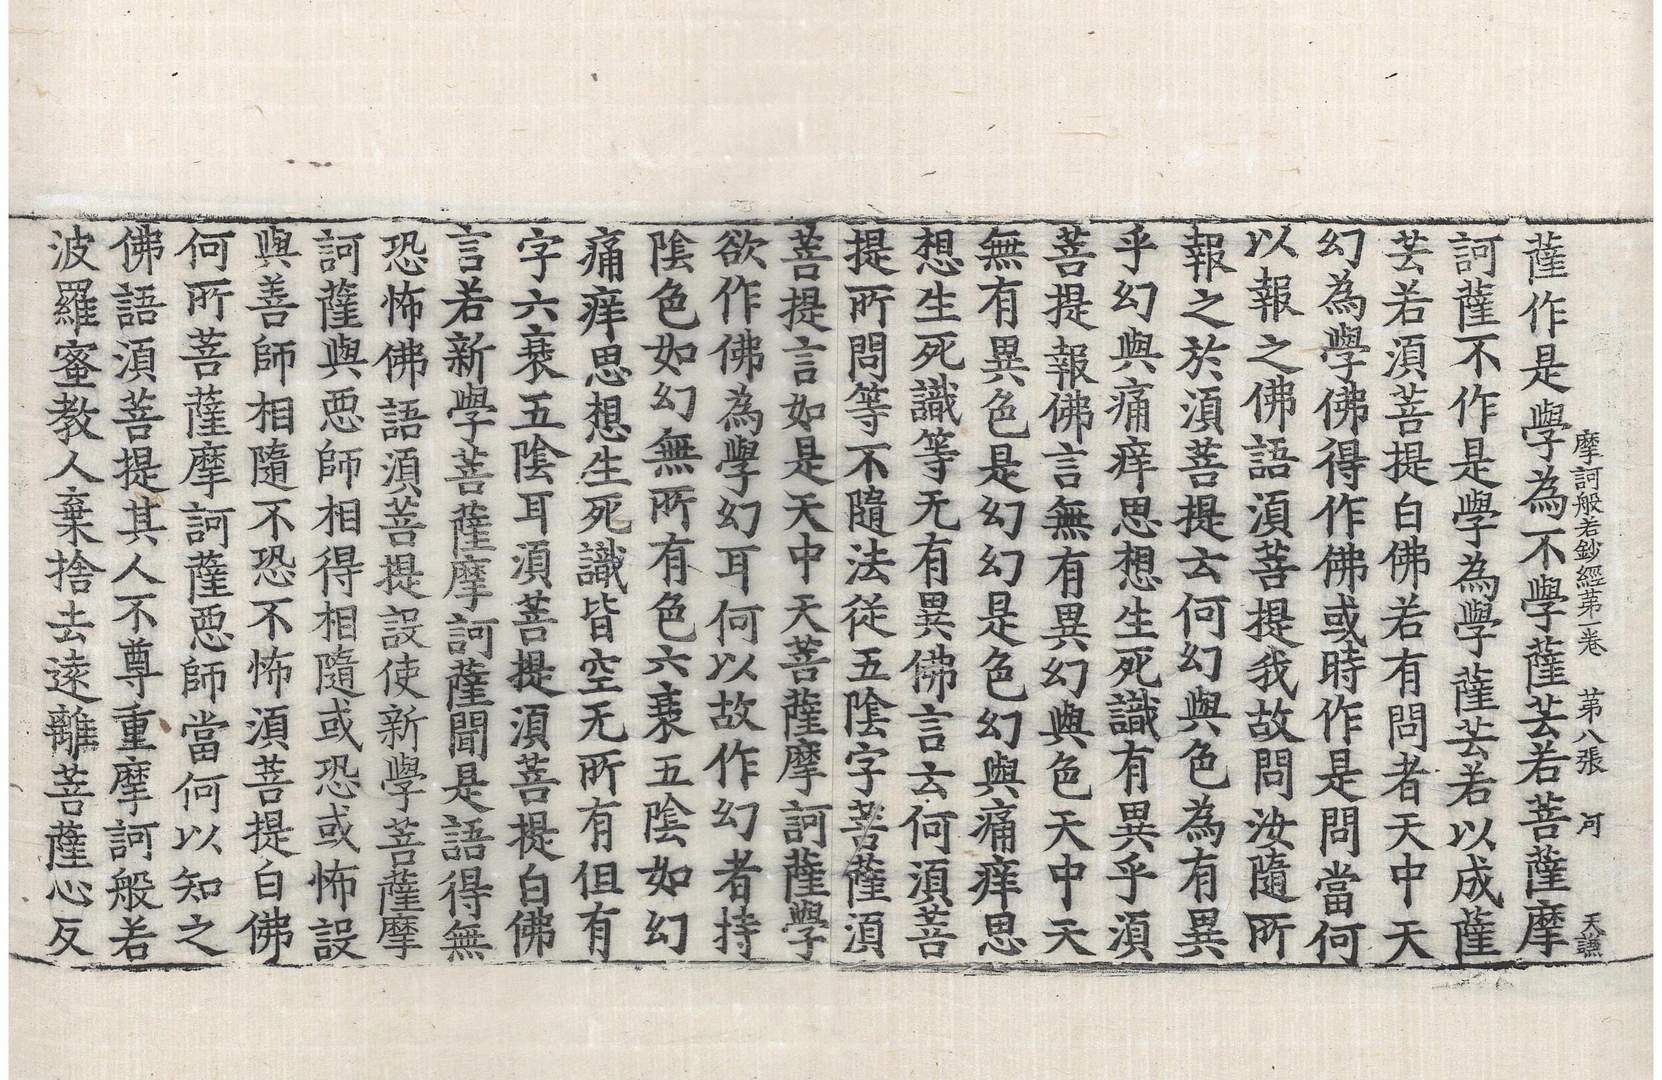 摩訶般若鈔經苐一卷 苐八張 河 天諫
薩作是學為不學薩芸若菩薩摩
訶薩不作是學為學薩芸若以成薩
芸若湏菩提白佛若有問者天中天
幻為學佛得作佛或時作是問當何
以報之佛語湏菩提我故問汝隨所
報之於湏菩提云何幻與色為有異
乎幻與痛痒思想生死識有異乎湏
菩提報佛言無有異幻與色天中天
無有異色是幻幻是色幻與痛痒思
想生死識等无有異佛言云何湏菩
提所問等不隨法從五陰字菩薩湏
菩提言如是天中天菩薩摩訶薩學
欲作佛為學幻耳何以故作幻者持
陰色如幻無所有色六衰五陰如幻
痛痒思想生死識皆空无所有但有
字六衰五陰耳湏菩提湏菩提白佛
言若新學菩薩摩訶薩聞是語得無
恐怖佛語湏菩提設使新學菩薩摩
訶薩與悪師相得相隨或恐或怖設
與善師相隨不恐不怖湏菩提白佛
何所菩薩摩訶薩悪師當何以知之
佛語湏菩提其人不尊重摩訶般若
波羅蜜教人棄捨去遠離菩薩心反